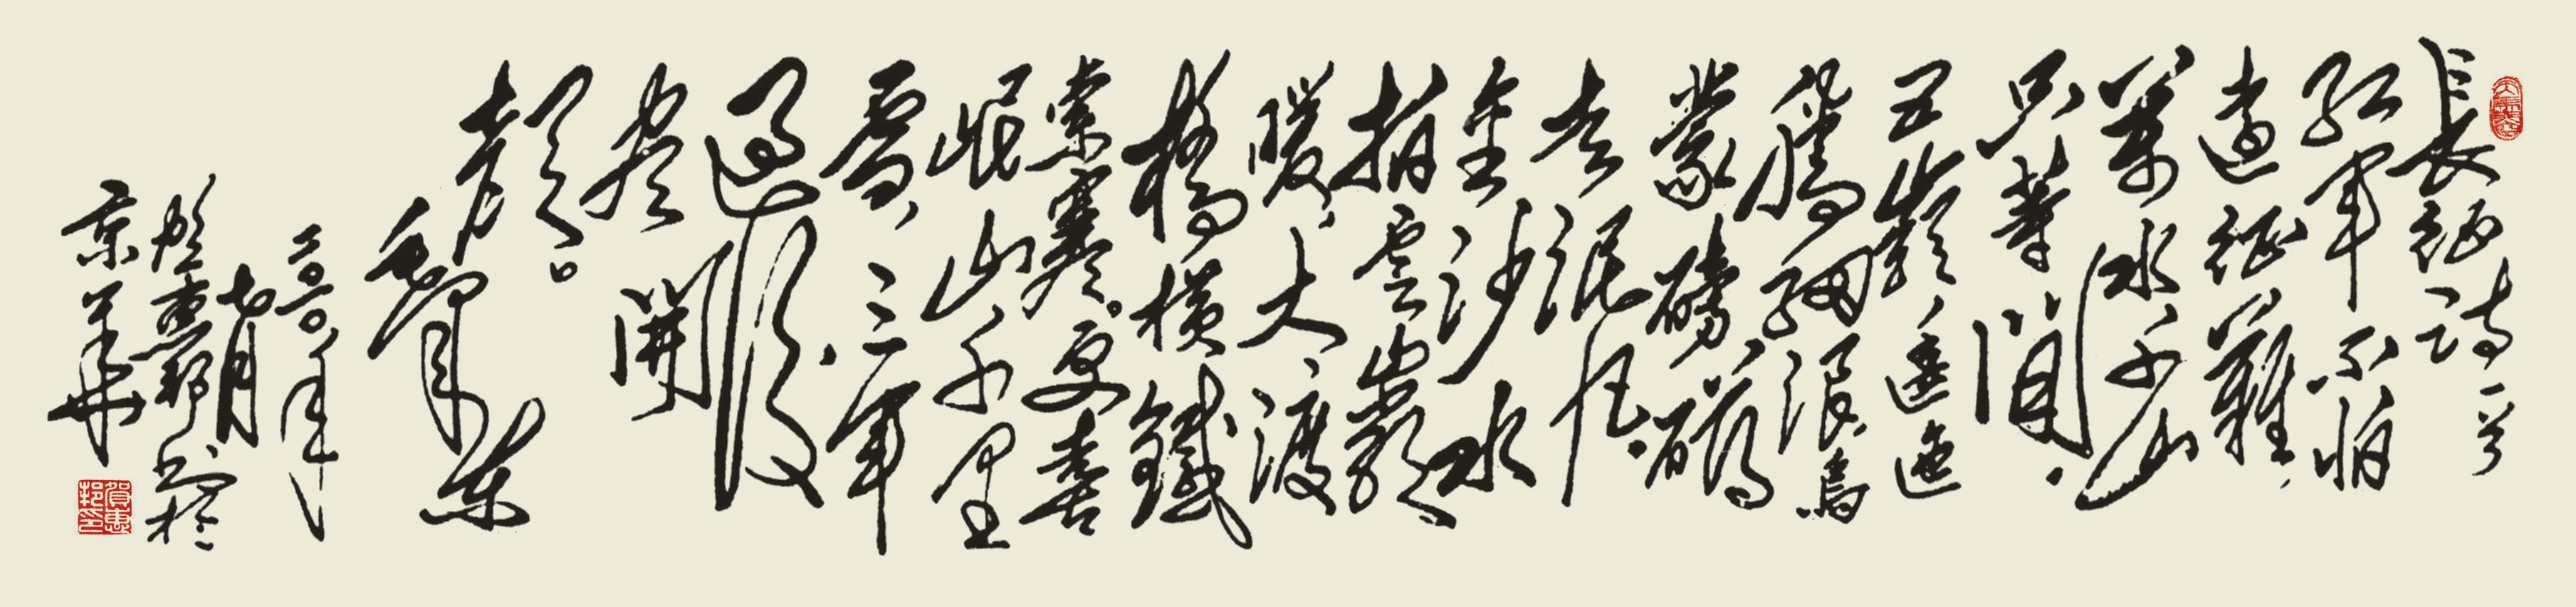 長征詩一首
紅軍不怕
遠征難，
萬水千山
只等閒。
五嶺逶迤
騰細浪，烏
蒙磅礴
走泥丸。
金沙水
拍雲巖
暖，大渡
橋橫鐵
索寒。更喜
岷山千里
雪，三軍
過後
盡開
顏。
毛澤東
二〇一〇年
七月
賀惠邦書於
京華
賀惠邦印